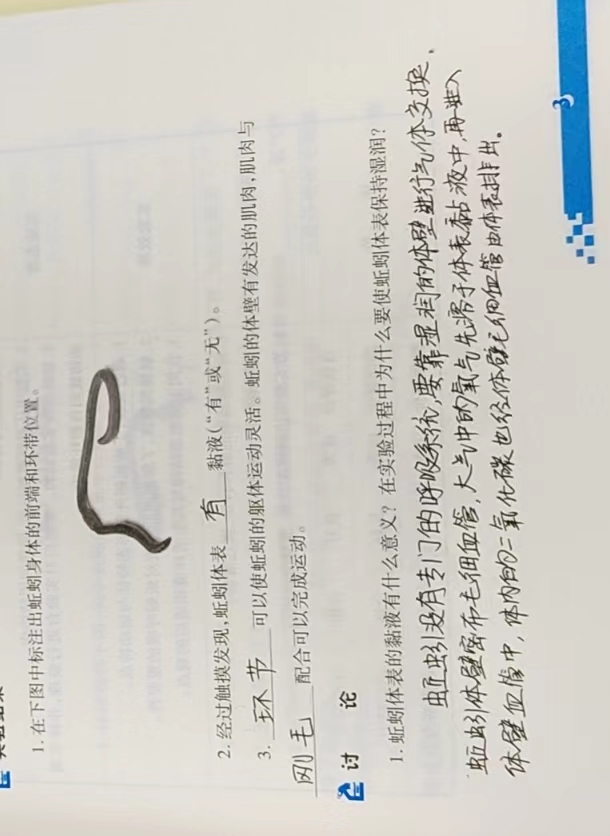 1. 在下图中标注出蚯蚓身体的前端和环带位置。
2. 经过触摸发现,蚯蚓体表 有 黏液(“有”或“无”)。
3. 环节 可以使蚯蚓的躯体运动灵活。蚯蚓的体壁有发达的肌肉,肌肉与
刚毛 配合可以完成运动。
讨 论
1. 蚯蚓体表的黏液有什么意义?在实验过程中为什么要使蚯蚓体表保持湿润?
蚯蚓没有专门的呼吸系统,要靠湿润的体壁进行气体交换,
蚯蚓体壁密布毛细血管,大气中的氧气先溶于体表黏液中,再进入
体壁血管中,体内的二氧化碳也经体壁毛细血管由体表排出。
3